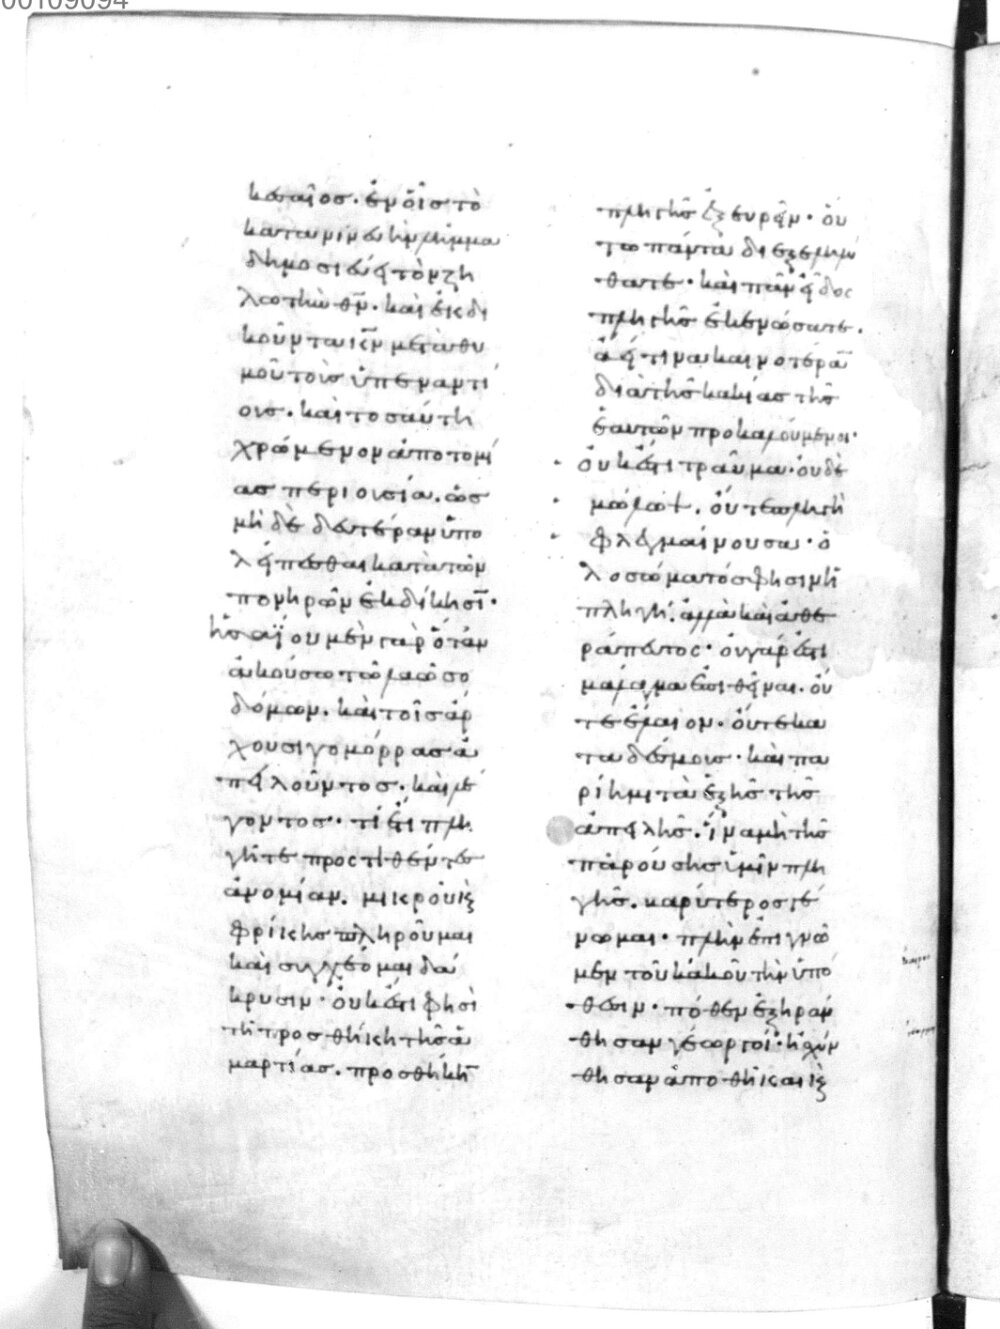 00109094
καῖος. ἐν οἷς τὸ
κατανινώτην ῥῆμα
δημοσιεύει τὸν ζη
λωτὴν θν. καὶ ἐκδι
κοῦντα κν μετὰ θυ
μοῦ τοὺς ὑπεναντί
ους. καὶ τοσαύτη
χρώμενον ἀποτομί
ας περιουσία. ὡς
μὴ δὲ δευτέραν ὑπο
λείπεσθαι κατὰ τῶν
πονηρῶν ἐκδίκησϊ.
ησαΐου μὲν γὰρ ὅταν
ἀκούσω τῶ λαῶ σο
δόμων. καὶ τοῖς ἄρ
χουσι γομόρρας ἀ
πειλοῦντος. καὶ λέ
γοντος· τί ἔτι πλη
γῆτε προςτιθέντες
ἀνομίαν. μικροῦ κ
φρίκης πληροῦμαι
καὶ συγχέομαι δά
κρυσιν· οὐκ ἔτι φησὶ
τῆ προσθήκη τῆς ἁ
μαρτίας. προσθήκη
πληγῆς ἐξευρεῖν· οὕ
τω πάντα διεξεληλύ
θατε· καὶ πᾶν εἶδος
πληγῆς ἐκενώσατε.
ἀεί τινα καινοτέραν
διὰ τῆς κακίας τῆς
ἑαυτῶν προκαλούμενοι·
οὐκ ἔτι τραῦμα· οὐδὲ
μώλωψ. οὔτε πληγὴ
φλεγμαίνουσα· ὁ
λοσώματός φησιν ἡ
πληγή. ἀλλὰ καὶ ἀθε
ράπευτος· οὐ γάρ ἐστι
μάλαγμα ἐπιθεῖναι. οὔ
τε ἔλαιον. οὔτε κα
ταδέσμους· καὶ πα
ρίημι τὰ ἑξῆς τῆς
ἀπειλῆς. ἵνα μὴ τῆς
παρούσης ὑμῖν πλη
γῆς. βαρύτερος γέ
νωμαι· πλὴν ἐπιγνῶ
μεν τοῦ κακοῦ τὴν ὑπό
θεσιν· πόθεν ἐξηράν
θησαν γεωργοί· ἠσχύν
θησαν ἀποθῆκαι κ